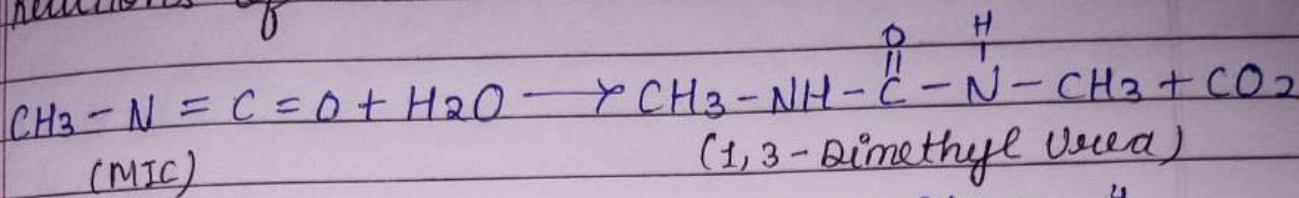 of
O H
|| |
CH3 - N = C = O + H2O → CH3 - NH - C - N - CH3 + CO2
(MIC) (1,3 - Dimethyl Urea)